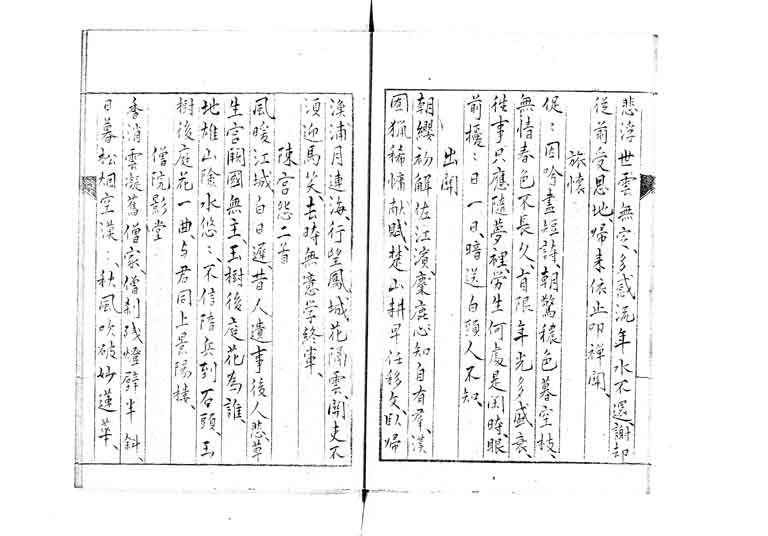 悲浮世雲無定、多感流年水不還、謝却
従前受恩地、帰来依止叩禅関、
旅懐
促〻因吟昼短詩、朝驚穠色暮空枝、
無情春色不長久、有限年光多盛衰、
往事只應随夢裡、労生何處是閑時、眼
前擾〻日一日、暗送白頭人不知、
出関
朝纓初解佐江濱、麋鹿心知自有群、漢
囿猟稀慵献賦、楚山耕早任移文、臥帰
漁浦月連海、行望鳳城花隔雲、関吏不
須迎馬笑、去時無意学終軍、
陳宮怨二首
風暖江城白日遅、昔人遺事後人悲、草
生宮闕國無主、玉樹後庭花為誰、
地雄山険水悠〻、不信隋兵到石頭、玉
樹後庭花一曲、与君同上景陽楼、
僧院影堂
香消雲凝舊僧家、僧刹残燈壁半斜、
日暮松烟空漠〻、秋風吹破妙蓮華、